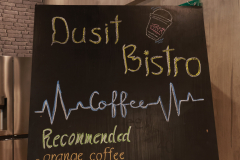 Dusit
Bistro
Coffee
Recommended
orange coffee